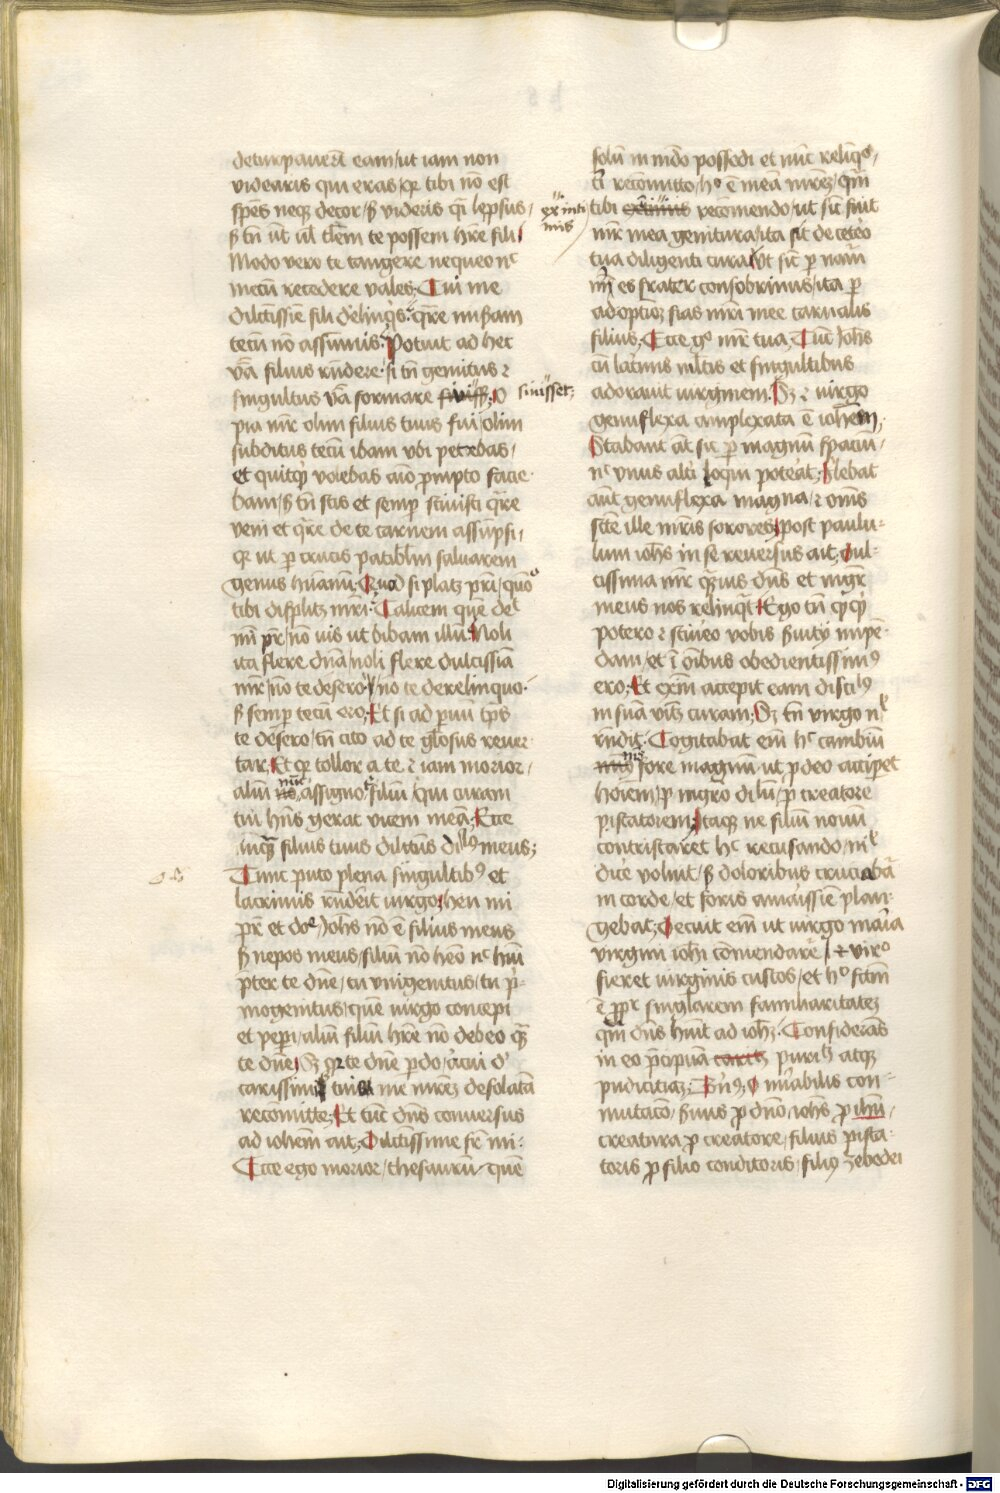 deturpauerūt eam / ut iam non
videaris qui eras / qr tibi nō est
spēs neqꝫ decor / sꝫ videris qͣ leprosus /
sꝫ tn̄ ut ul tlem te possem hr̄e fili
Modo vero te tangere nequeo nͨ
mecū recedere vales Cui me
dilectissīe fili derlinqͥs qͣre miseram
tecū nō assumis Potuit ad hec
vͣ filius rn̄dere si tn̄ gemitus ꝛ
singultus vͣ formare siuisset O
pia mr̄ olim filius tuus fui / olim
subditus tecū ibam vbi petebas /
et quitqͥd volebas aīo prompto facie
bam / sꝫ tn̄ scis et semp sciuisti qͣre
veni et qͣre de te carnem assūpsi /
qr ut p crucis patiblm saluarem
genus humanū Quod si placꝫ pr̄i / quō
tibi displicꝫ mr̄i Calicem quē dꝫ
mͥ pr̄ / nō uis ut bibam illū Noli
ita flere dn̄a / noli flere dulcissīa
mr̄ / nō te desero / nō te derelinquo
sꝫ semp tecū ero Et si ad paruū tps
te desero / tn̄ cito ad te glōsus reuer
tar Et qr tollor a te ꝛ iam morior /
aliū nūc assigno filiū / qui curam
tui hn̄s gerat vicem meā Ecce
inqͣ filius tuus dilectus disci meus
Tunc puto plena singultibꝰ et
lacrimis rn̄derit virgo heu mi
pr̄ et do Johēs nō ē filius meus
sꝫ nepos meus / filiū nō hēo nͨ huī
pter te dn̄e / tu vnigenitus / tu pͥ
mogenitus / quē virgo concepi
et pepi / aliū filiū hr̄e nō debeo qͣ
te dn̄e Sꝫ qr te dn̄e pdo / cui dͥ
carissim tui me mr̄em desolatā
recomitte Et tūc dn̄s conuersus
ad iohem ait Dilectissime fr̄ mi
Ecce ego morior / thesaurū quē
solū in mūdo possedi et nūc relinqͦ /
ti recōmitto / hͦ ē meā mr̄eꝫ / qm̄
ex inti
mis
tibi recomendo / ut sic fuit
mr̄ mea genitura / ita sit de cetero
tua diligenti cura Ut sic p nām
mͥ es frater consobrinus / ita p
adoptōꝫ fias mr̄i mee carnalis
filius Ecce gͦ mr̄ tua Tūc Johēs
cū lacrimis mltis et singultibus
siuisset
adorauit virginem Sꝫ ꝛ virgo
genuflexa amplexata ē iohem
Stabant āt sic p magnū spaciū
nͨ vnus alti loqui poterat Flebat
aut genuflexa magna / ꝛ om̄s
scē ille mr̄is sorores post paulu
lum iohēs in se reuersus ait Dul
cissima mr̄ qͣuis dn̄s et mgr̄
meus nos relinqͥt Ego tn̄ qͥcqͥd
potero ꝛ sciuero vobis seruicꝫ impē
dam / et ī oībus obedientissimꝰ
ero Et exīn accepit eam discilꝰ
in suā vīꝫ curam Sꝫ tn̄ virgo nͥ
rn̄dit Cogitabat em̄ hͨ cambiū
nīs fore magnū ut p deo accipet
hoīem / p mgr̄o dilm̄ / p creatore
piscatorem Itaqꝫ ne filiū nouū
contristaret hͨ recusando / nͥ
dicē voluit / sꝫ doloribus cruciabā
in corde / et foris amarissīe plan
gebat Decuit em̄ ut virgo maria
virgini iohi cōmendaret / ꝛ viro
fieret virginis custos / et hͦ fctm̄
ē pp̄r singlarem familiaritateꝫ
qm̄ dn̄s huit ad iohꝫ Considerās
in eo pcipuā puritͣ atqꝫ
pudicitiaꝫ O mirabilis con
mutacō / seruus p dn̄o / iohēs p ihū /
creatura p creatore / filius pisca
toris p filio conditoris filiꝰ Zebedei
95